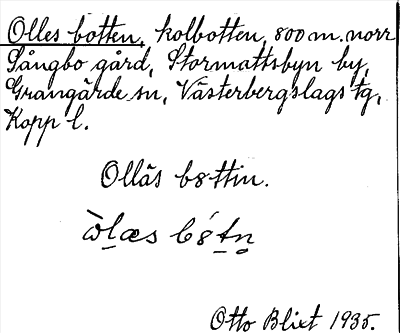 Olles botten, kolbotten, 800 m. norr
Sångbo gård, Stormattsbyn by,
Grangärde sn, Västerbergslags tg,
Kopp l.
Olläs bøttin.
Otto Blixt 1935.